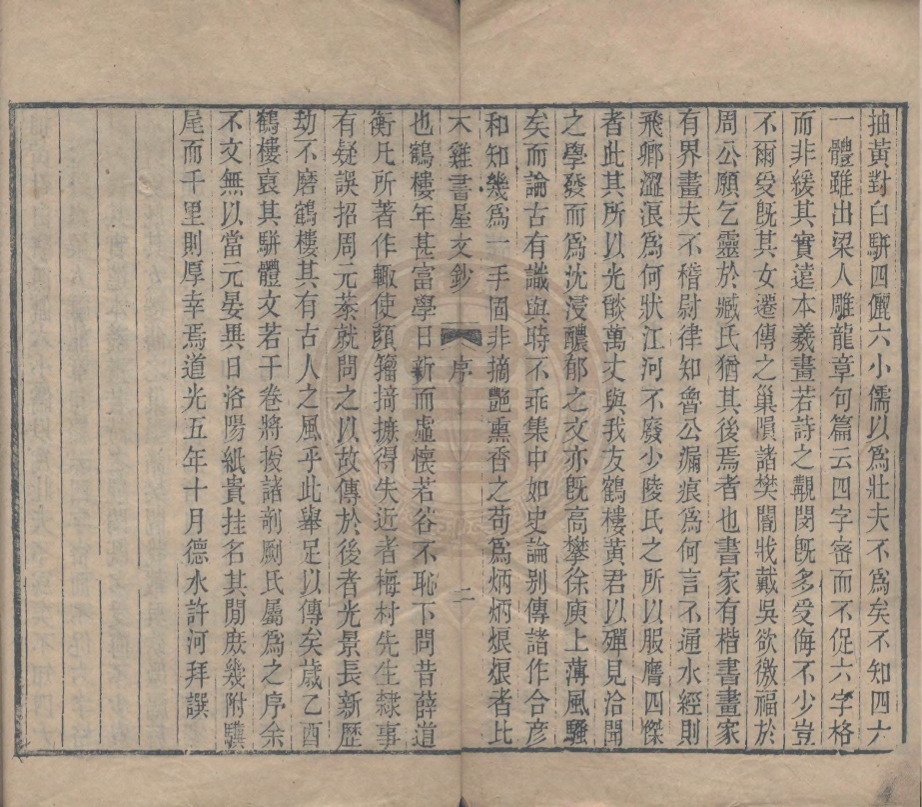 抽黃對白駢四儷六小儒以爲壯夫不爲矣不知四六
一體雖出梁人雕龍章句篇云四字密而不促六字格
而非緩其實遠本羲畫若詩之覯閔旣多受侮不少豈
不爾受旣其女遷傳之巢隕諸樊閽戕戴吳欲徼福於
周公願乞靈於臧氏猶其後焉者也書家有楷書畫家
有界畫夫不稽尉律知魯公漏痕爲何言不通水經則
飛卿澀浪爲何狀江河不廢少陵氏之所以服膺四傑
者此其所以光燄萬丈與我友鶴樓黃君以殫見洽聞
之學發而爲沈浸醲郁之文亦旣高攀徐庾上薄風騷
矣而論古有識與時不乖集中如史論別傳諸作合彥
和知幾爲一手固非摘艷熏香之苟爲炳炳烺烺者比
木雞書屋文鈔 序 二
也鶴樓年甚富學日新而虛懷若谷不恥下問昔薛道
衡凡所著作輒使顏籀掎摭得失近者梅村先生隸事
有疑誤招周元恭就問之以故傳於後者光景長新歷
劫不磨鶴樓其有古人之風乎此舉足以傳矣歲乙酉
鶴樓裒其駢體文若干卷將授諸剞劂氏屬爲之序余
不文無以當元晏異日洛陽紙貴挂名其閒庶幾附驥
尾而千里則厚幸焉道光五年十月德水許河拜譔